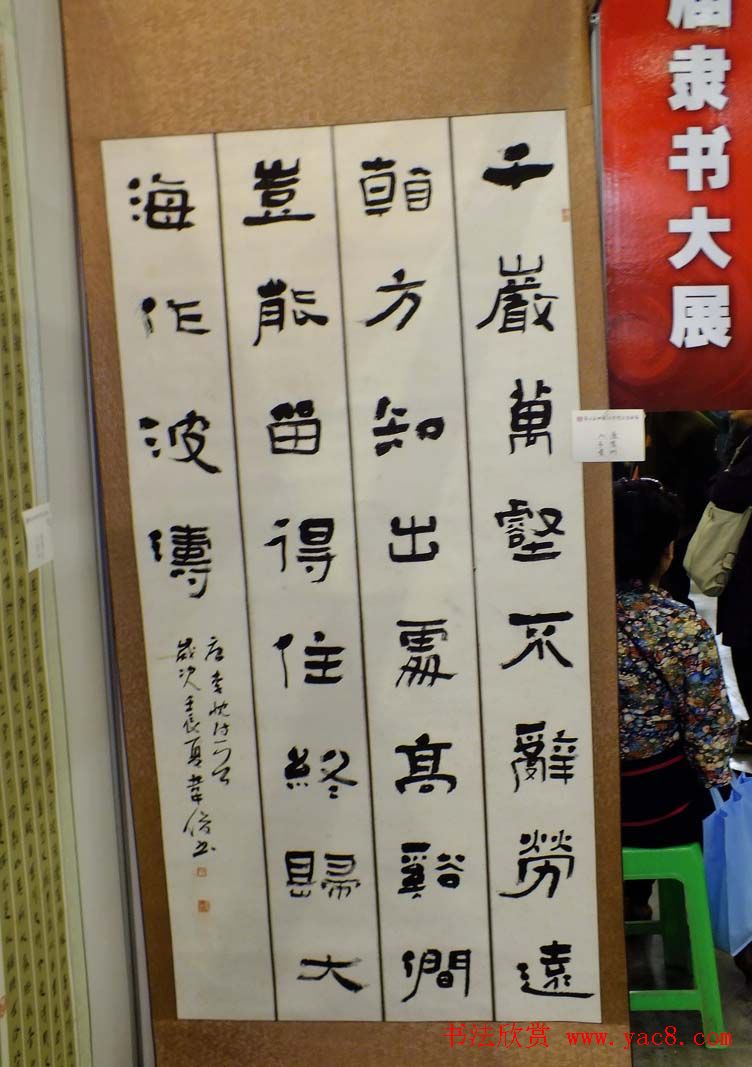 届隶书大展
千巖萬壑不辭勞遠
看方知出處高谿澗
豈能留得住終歸大
海作波濤
唐李忱诗一首
歲次壬辰夏韋俊书
书法欣赏 www.yac8.com